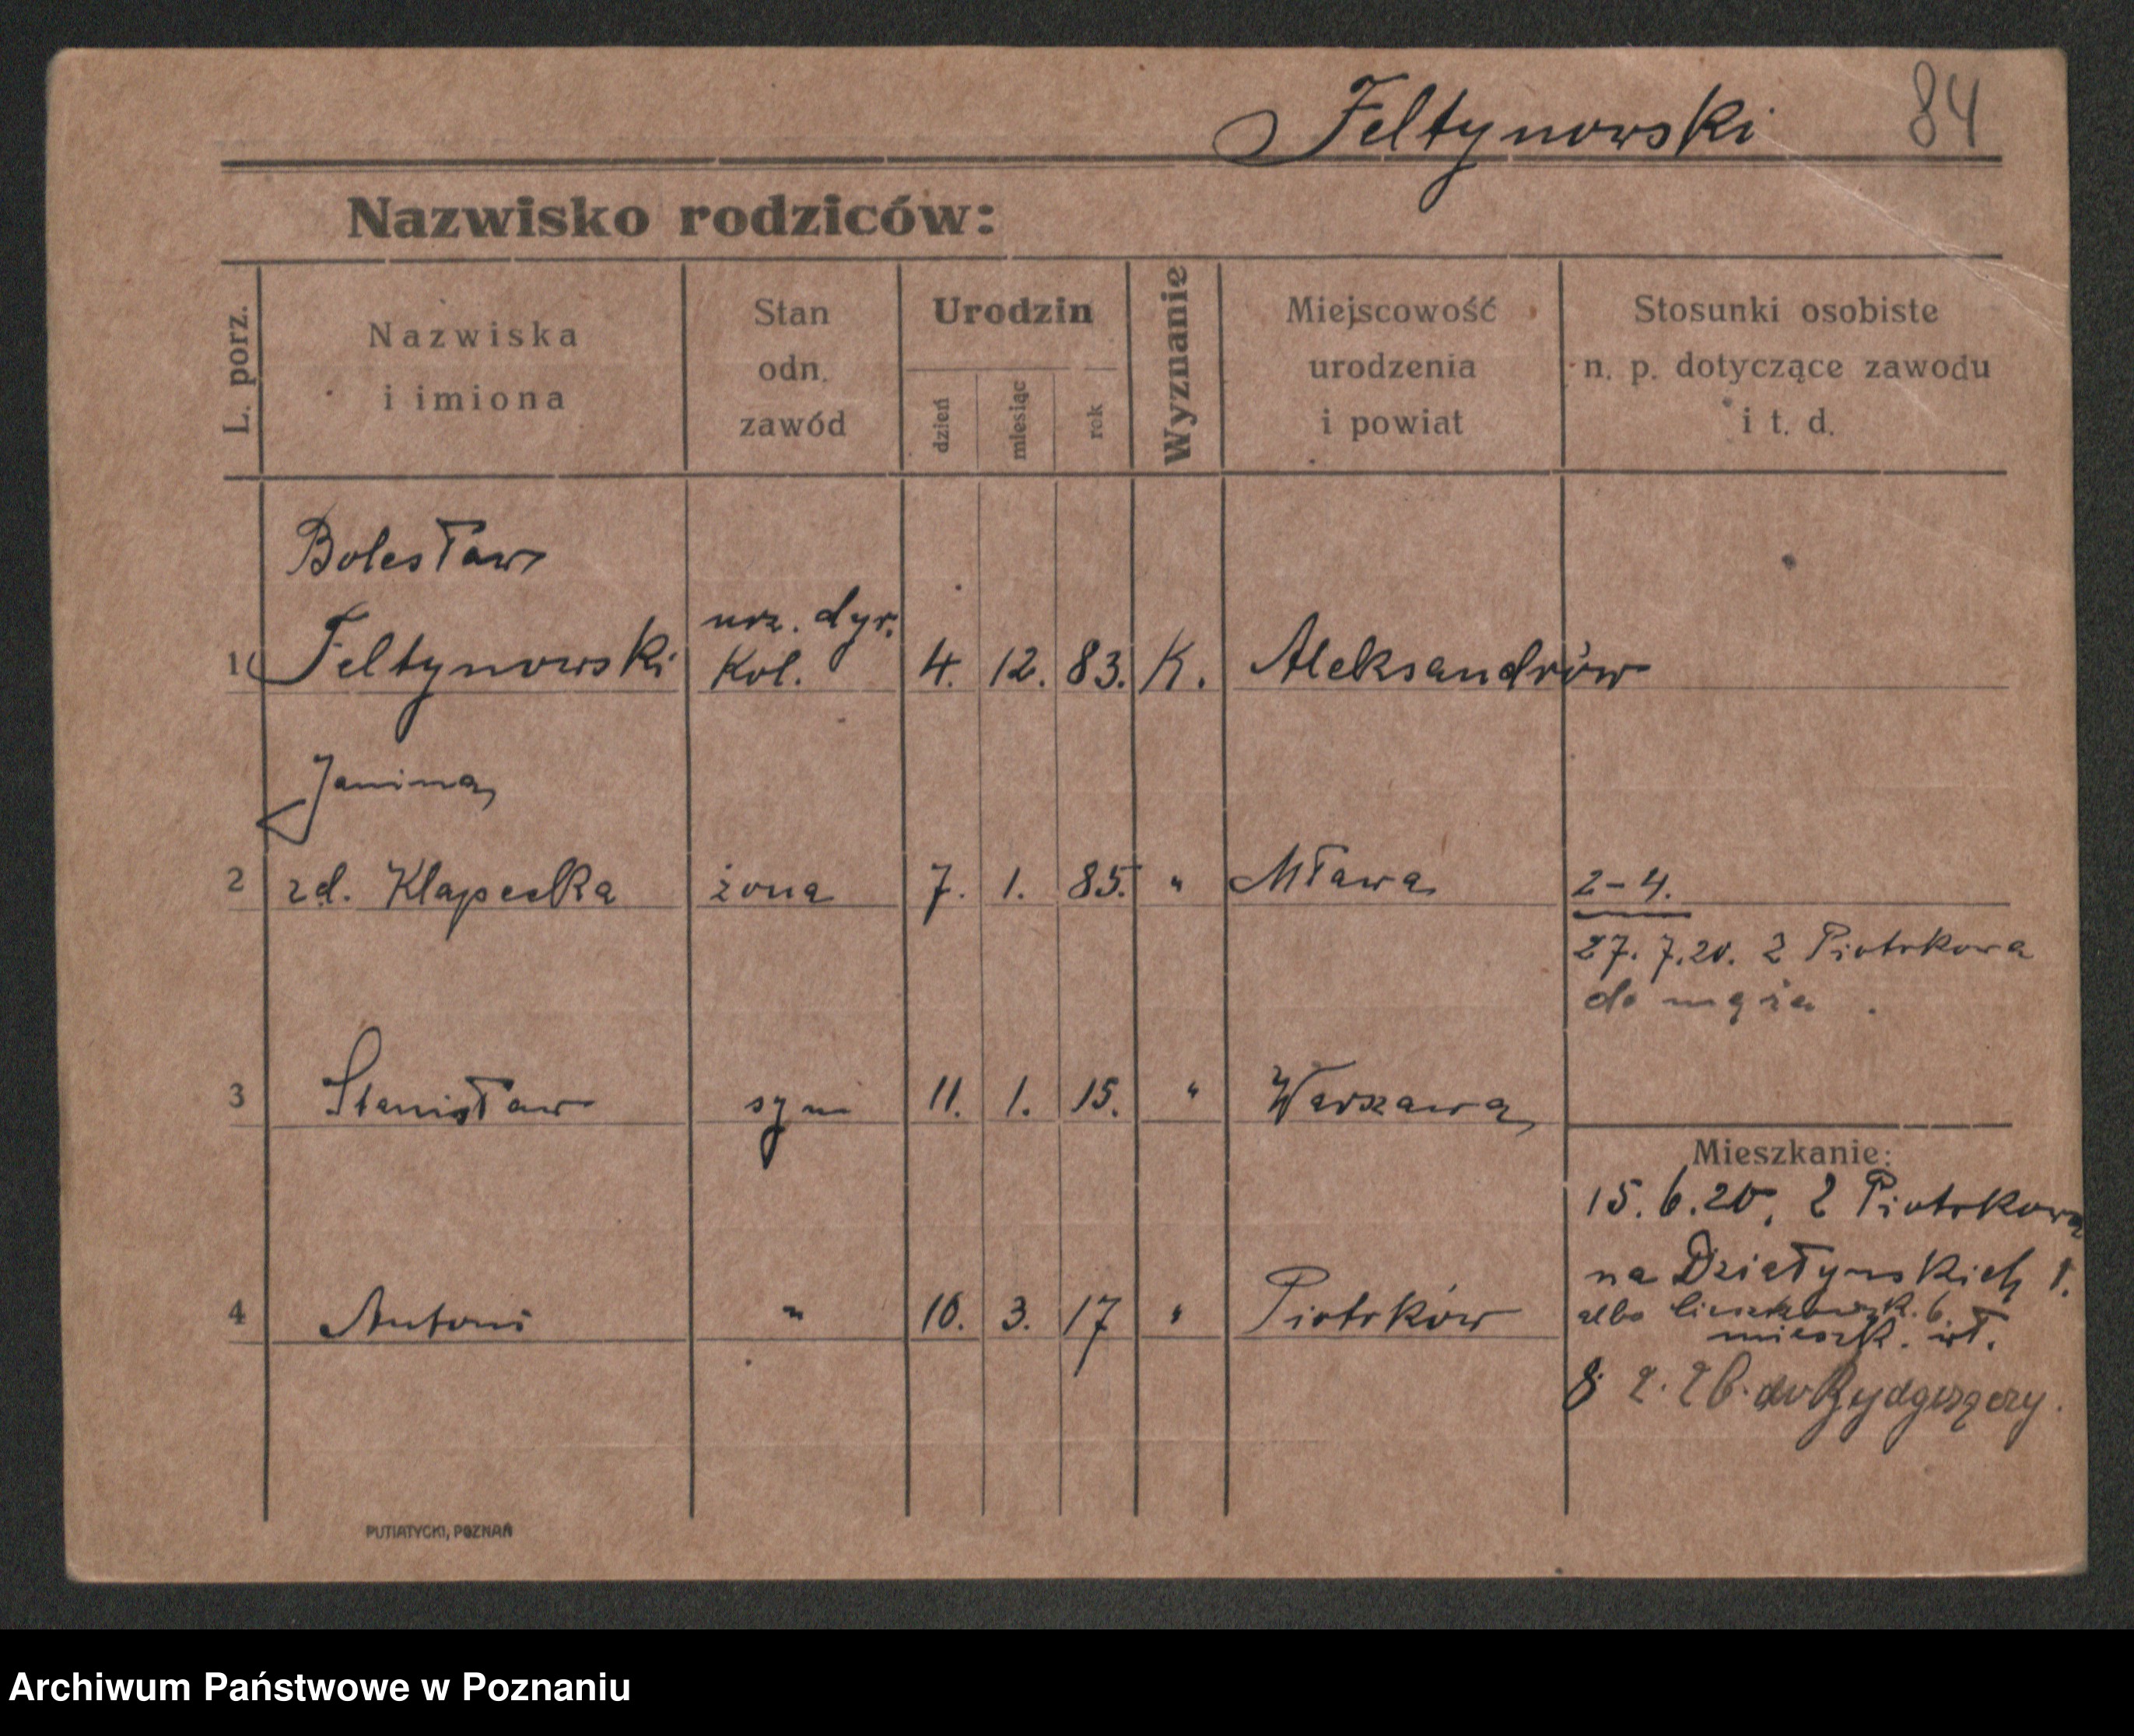 Feltynowski 84
Nazwisko rodziców:
L. porz.
Nazwiska
i imiona
Stan
odn.
zawód
Urodzin
dzień
miesiąc
rok
Wyznanie
Miejscowość
urodzenia
i powiat
Stosunki osobiste
n. p. dotyczące zawodu
i t. d.
Bolesław
urz. dyr.
1 Feltynowski Kol. 4. 12. 83. K. Aleksandrów
Janina
2 zd. Klapecka żona 7. 1. 85. " Mława 2-4.
27. 7. 20. z Piotrkowa
do męża
3 Stanisław syn 11. 1. 15. " Warszawa
Mieszkanie:
15. 6. 20. z Piotrkowa
na Działyńskich 1.
4 Antoni " 10. 3. 17 " Piotrków
albo 6
mieszk. wł.
8 2. 26. do Bydgoszczy.
PUTIATYCKI, POZNAŃ
Archiwum Państwowe w Poznaniu